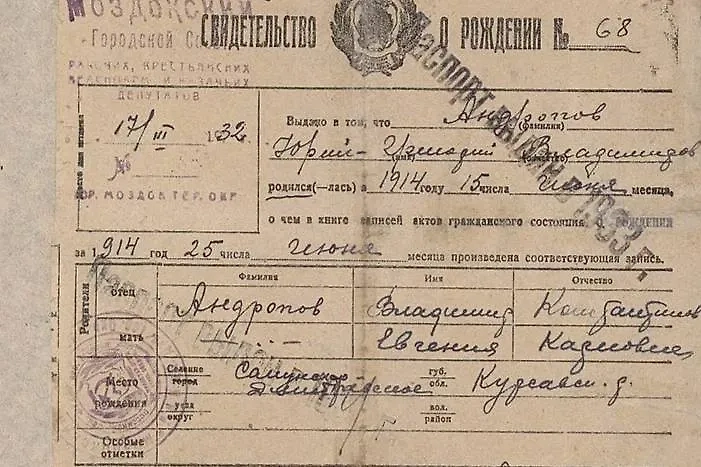 МОЗДОКСКИЙ
Городской
СВИДЕТЕЛЬСТВО О РОЖДЕНИИ № 68
РАБОЧИХ, КРЕСТЬЯНСКИХ
КРАСНОАРМ. И КАЗАЧЬИХ
ДЕПУТАТОВ
17/III 1932
№
ГОР. МОЗДОК ТЕР. ОКР.
Выдано в том, что Андропов
(фамилия)
Юрий-Григорий Владимиров
(имя) (отчество)
родился(—лась) в 1914 году 15 числа июня месяца,
о чем в книге записей актов гражданского состояния о рождении
за 1914 год 25 числа июня месяца произведена соответствующая запись.
Паспорт выдан 1933 г.
Паспорт выдан
Родители
Фамилия Имя Отчество
отец Андропов Владимир Константинов
мать - - - Евгения Карловна
Место рождения
Селение город губ. обл. Курсавск. р.
уезд округ вол. район
Особые отметки